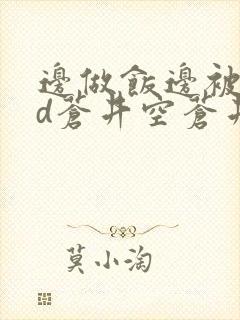 邊做飯邊被
d蒼井空蒼井
莫小淘